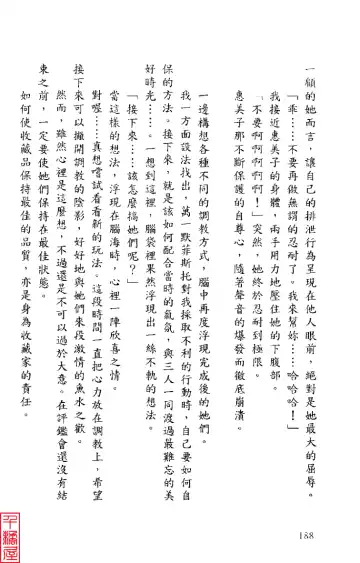 一顧的她而言，讓自己的排泄行為呈現在他人眼前，絕對是她最大的屈辱。
「乖……不要再做無謂的忍耐了。我來幫妳……哈哈哈！」
我接近惠美子的身體，兩手用力地壓住她的下腹部。
「不要啊啊啊啊！」突然，她終於忍耐到極限。
惠美子那不斷保護的自尊心，隨著聲音的爆發而徹底崩潰。
一邊構想各種不同的調教方式，腦中再度浮現完成後的她們。
我一方面設法找出，萬一默菲斯托對我採取不利的行動時，自己要如何自
保的方法。接下來，就是該如何配合當時的氣氛，與三人一同渡過最難忘的美
好時光……。一想到這裡，腦袋裡果然浮現出一絲不軌的想法。
「接下來……該怎麼搞她們呢？」
當這樣的想法，浮現在腦海時，心裡一陣欣喜之情。
對喔……真想嘗試看看新的玩法。這段時間一直把心力放在調教上，希望
接下來可以撇開調教的陰影，好好地與她們來段激情的魚水之歡。
然而，雖然心裡是這麼想，不過還是不可以過於大意。在評鑑會還沒有結
束之前，一定要使她們保持在最佳狀態。
如何使收藏品保持最佳的品質，亦是身為收藏家的責任。
188